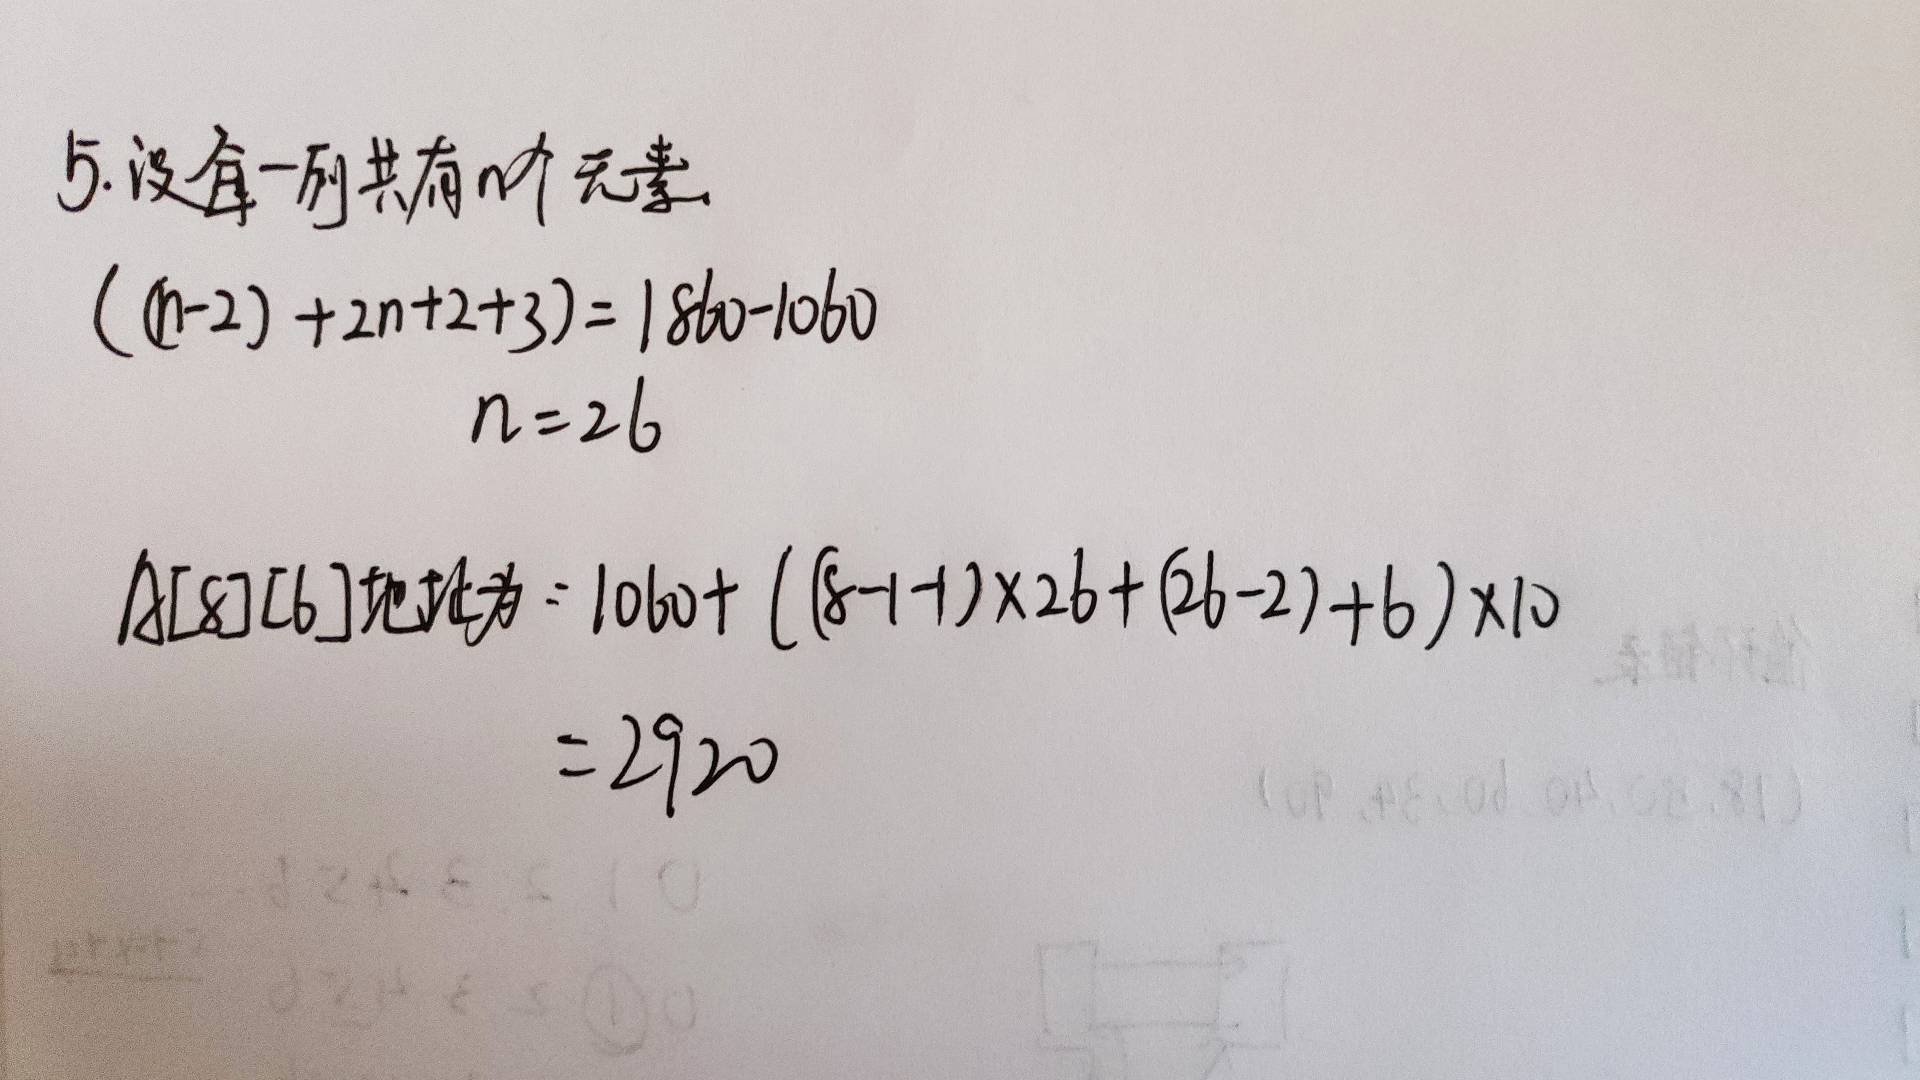 5.设每一列共有n个元素
((n-2)+2n+2+3)=1860-1060
n=26
A[8][6]地址为=1060+((8-1-1)×26+(26-2)+6)×10
=2920